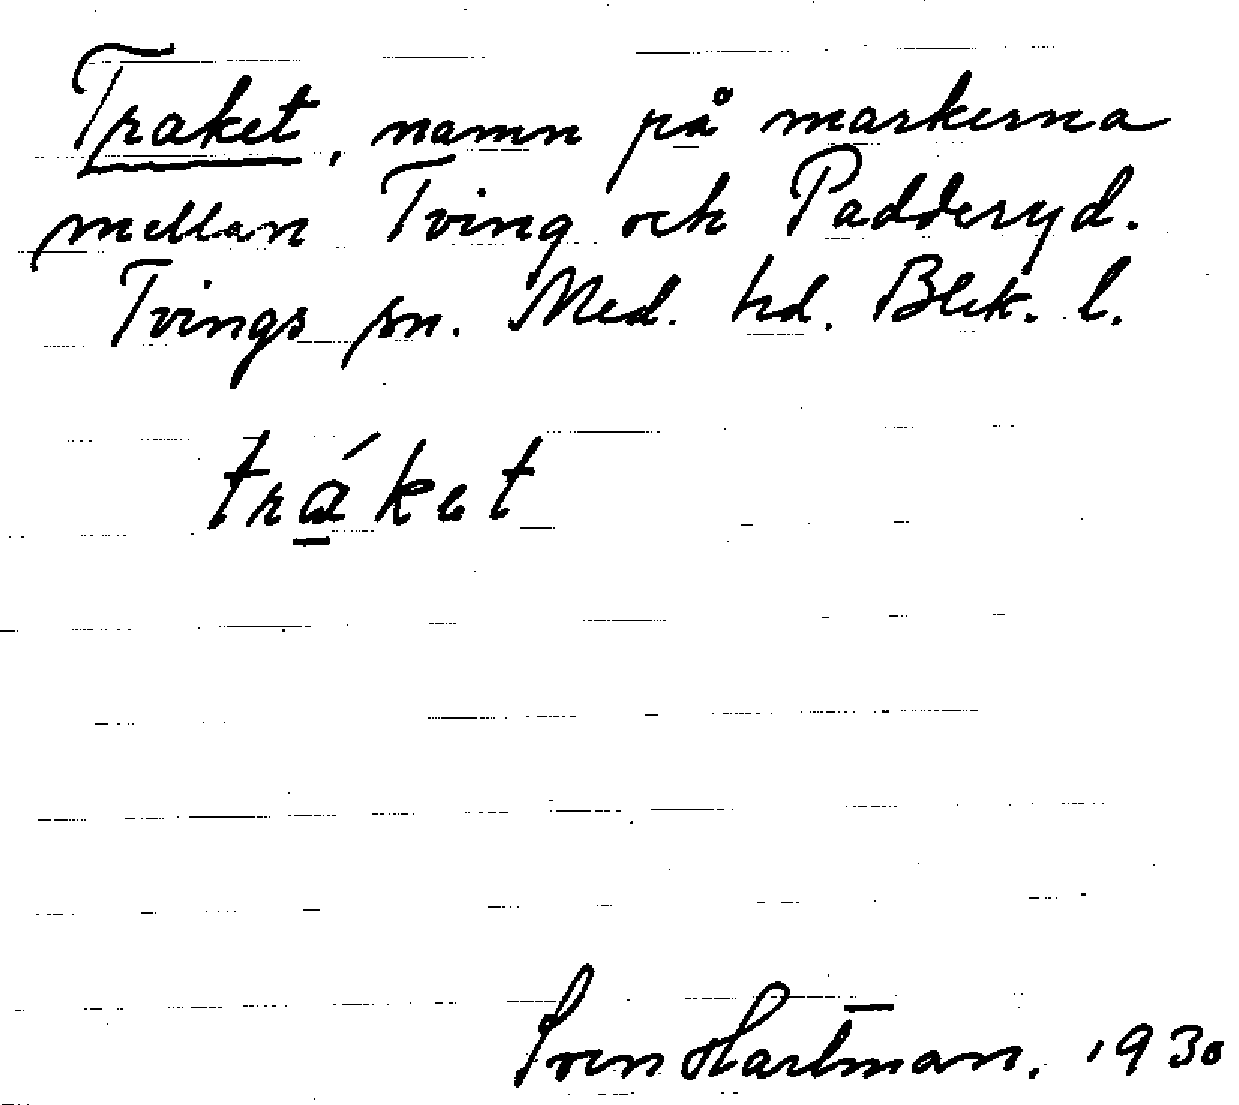 Traket, namn på markerna
mellan Tving och Padderyd.
Tvings sn. Med. hd. Blek. l.
tráket
Sven Hartman. 1930